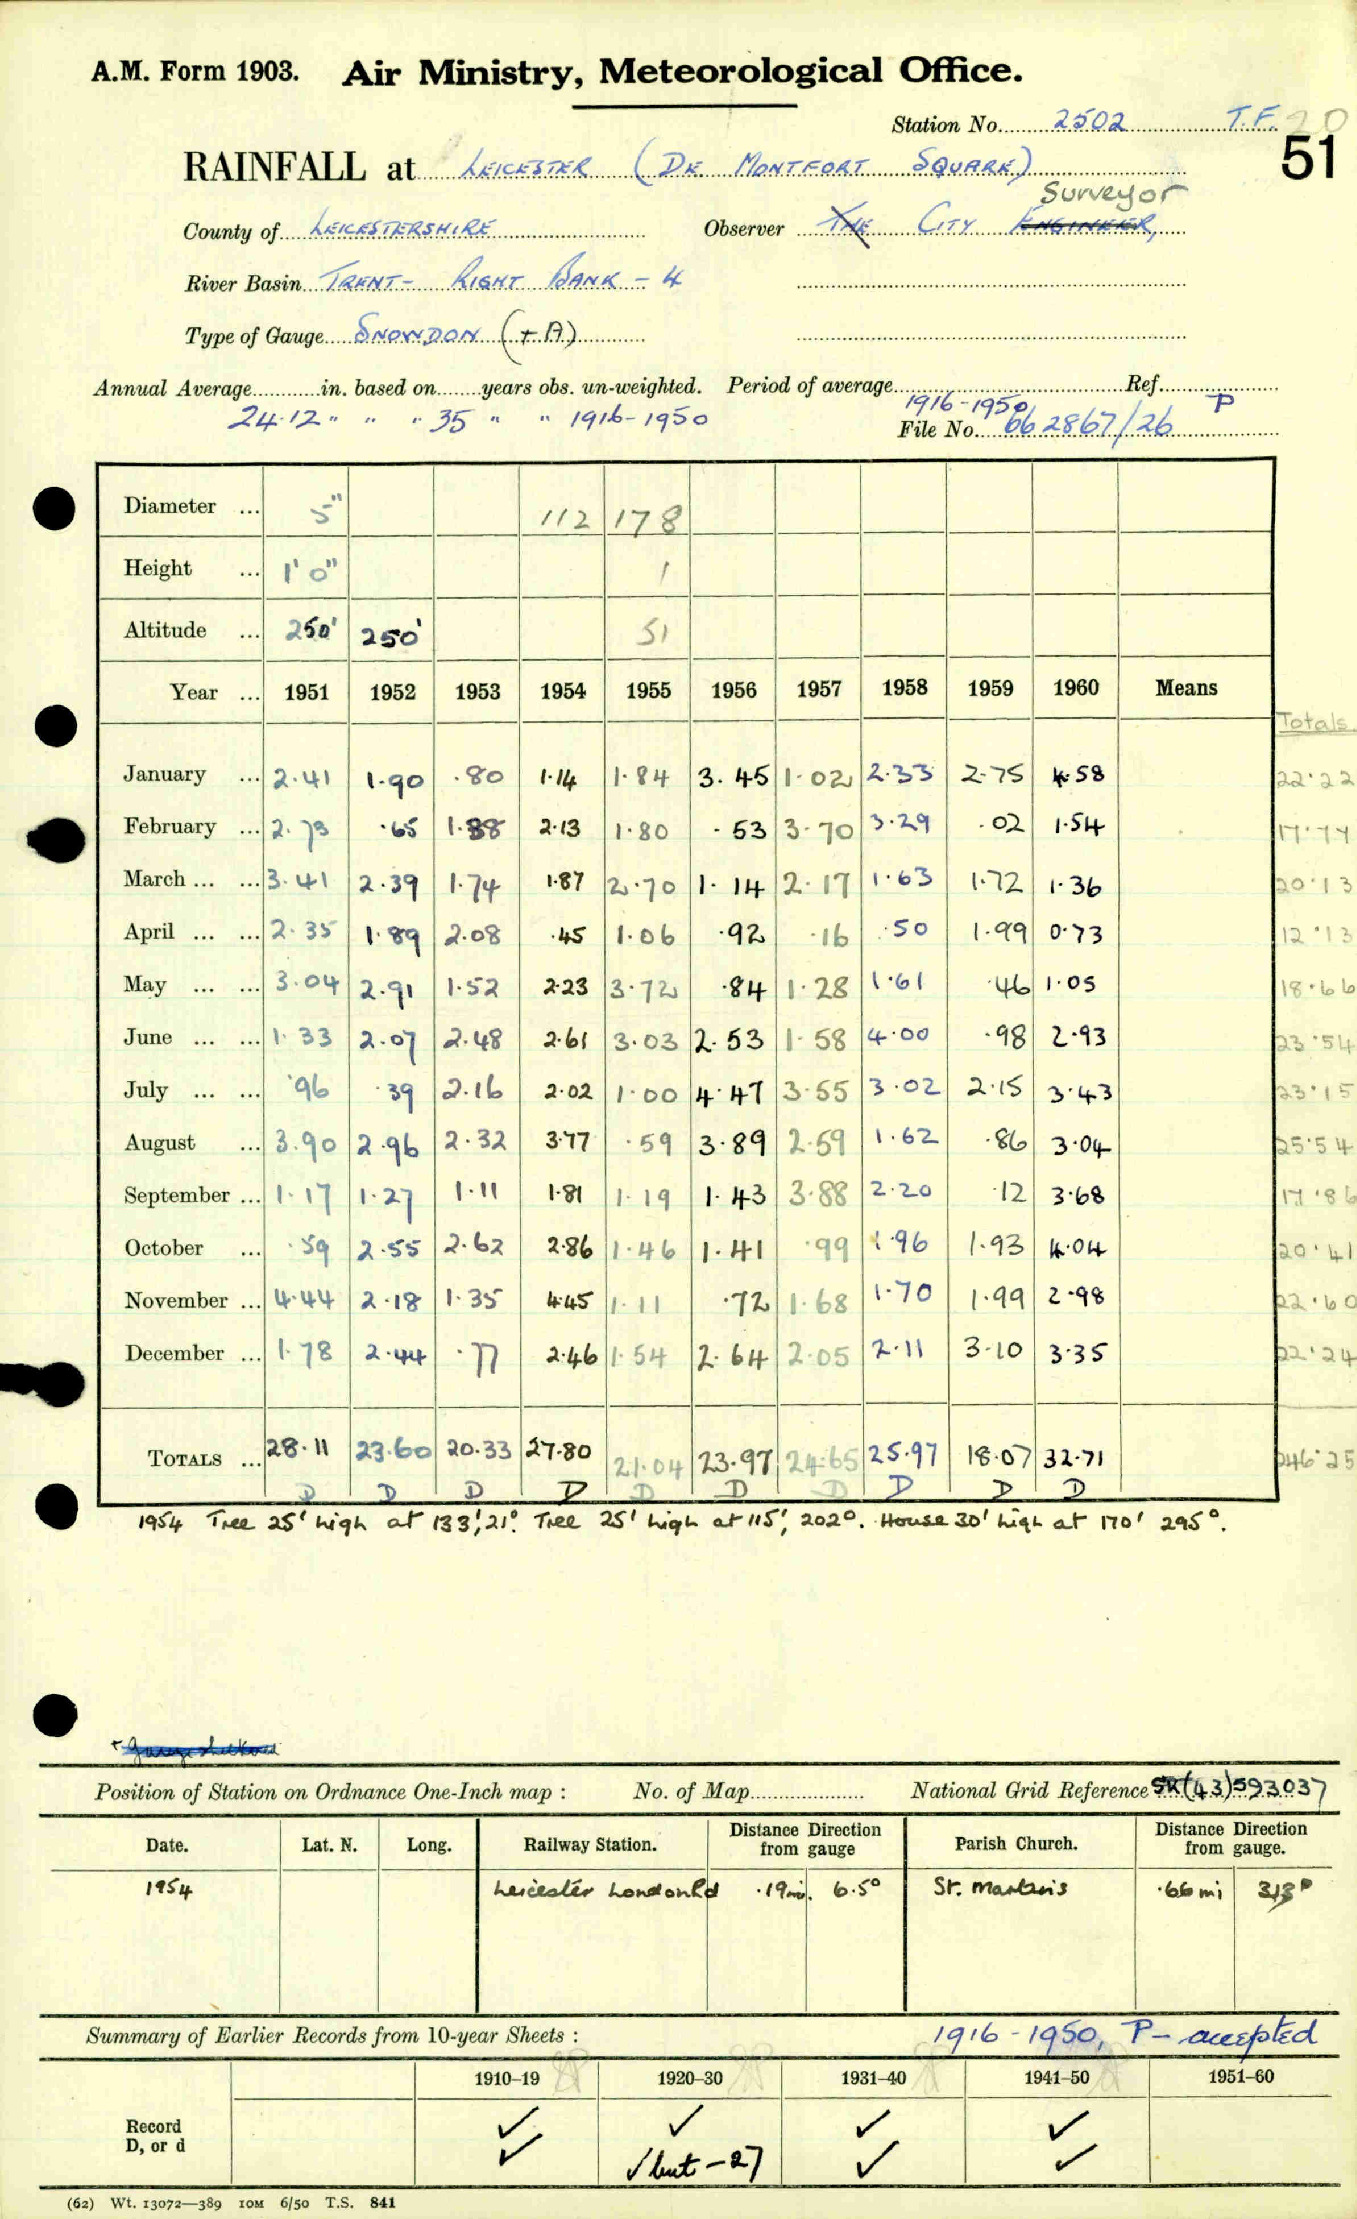 A.M. Form 1903. Air Ministry, Meteorological Office.
Station No. 2502 T.F. 20
RAINFALL at LEICESTER (DE MONTFORT SQUARE) 51
Surveyor
County of LEICESTERSHIRE Observer THE CITY ENGINEER,
River Basin TRENT - RIGHT BANK - 4
Type of Gauge SNOWDON (+A)
Annual Average in. based on years obs. un-weighted. Period of average Ref.
24.12 " " " 35 " " 1916-1950 1916-1950 P
File No. 662867/26
Diameter ... 5" 112 178
Height ... 1' 0" 1
Altitude ... 250' 250' 51
Year ... 1951 1952 1953 1954 1955 1956 1957 1958 1959 1960 Means
Totals
January ... 2.41 1.90 .80 1.14 1.84 3.45 1.02 2.33 2.75 4.58 22.22
February ... 2.73 .65 1.38 2.13 1.80 .53 3.70 3.29 .02 1.54 17.77
March ... ... 3.41 2.39 1.74 1.87 2.70 1.14 2.17 1.63 1.72 1.36 20.13
April ... ... 2.35 1.89 2.08 .45 1.06 .92 .16 .50 1.99 0.73 12.13
May ... ... 3.04 2.91 1.52 2.23 3.72 .84 1.28 1.61 .46 1.05 18.66
June ... ... 1.33 2.07 2.48 2.61 3.03 2.53 1.58 4.00 .98 2.93 23.54
July ... ... .96 .39 2.16 2.02 1.00 4.47 3.55 3.02 2.15 3.43 23.15
August ... 3.90 2.96 2.32 3.77 .59 3.89 2.59 1.62 .86 3.04 25.54
September ... 1.17 1.27 1.11 1.81 1.19 1.43 3.88 2.20 .12 3.68 17.86
October ... .59 2.55 2.62 2.86 1.46 1.41 .99 1.96 1.93 4.04 20.41
November ... 4.44 2.18 1.35 4.45 1.11 .72 1.68 1.70 1.99 2.98 22.60
December ... 1.78 2.44 .77 2.46 1.54 2.64 2.05 2.11 3.10 3.35 22.24
TOTALS ... 28.11 23.60 20.33 27.80 21.04 23.97 24.65 25.97 18.07 32.71 246.25
D D D D D D D D D D
1954 Tree 25' high at 133', 21°. Tree 25' high at 115', 202°. House 30' high at 170' 295°.
Position of Station on Ordnance One-Inch map : No. of Map National Grid Reference SK(43)593037
Date. Lat. N. Long. Railway Station. Distance from gauge Direction Parish Church. Distance from gauge. Direction
1954 Leicester London Rd .19mi. 65° St. Martins .66 mi 313°
Summary of Earlier Records from 10-year Sheets : 1916-1950, P- accepted
1910–19 1920–30 1931–40 1941–50 1951–60
Record ✓ ✓ ✓ ✓
D, or d ✓ ✓ but -27 ✓ ✓
(62) Wt. 13072—389 10M 6/50 T.S. 841